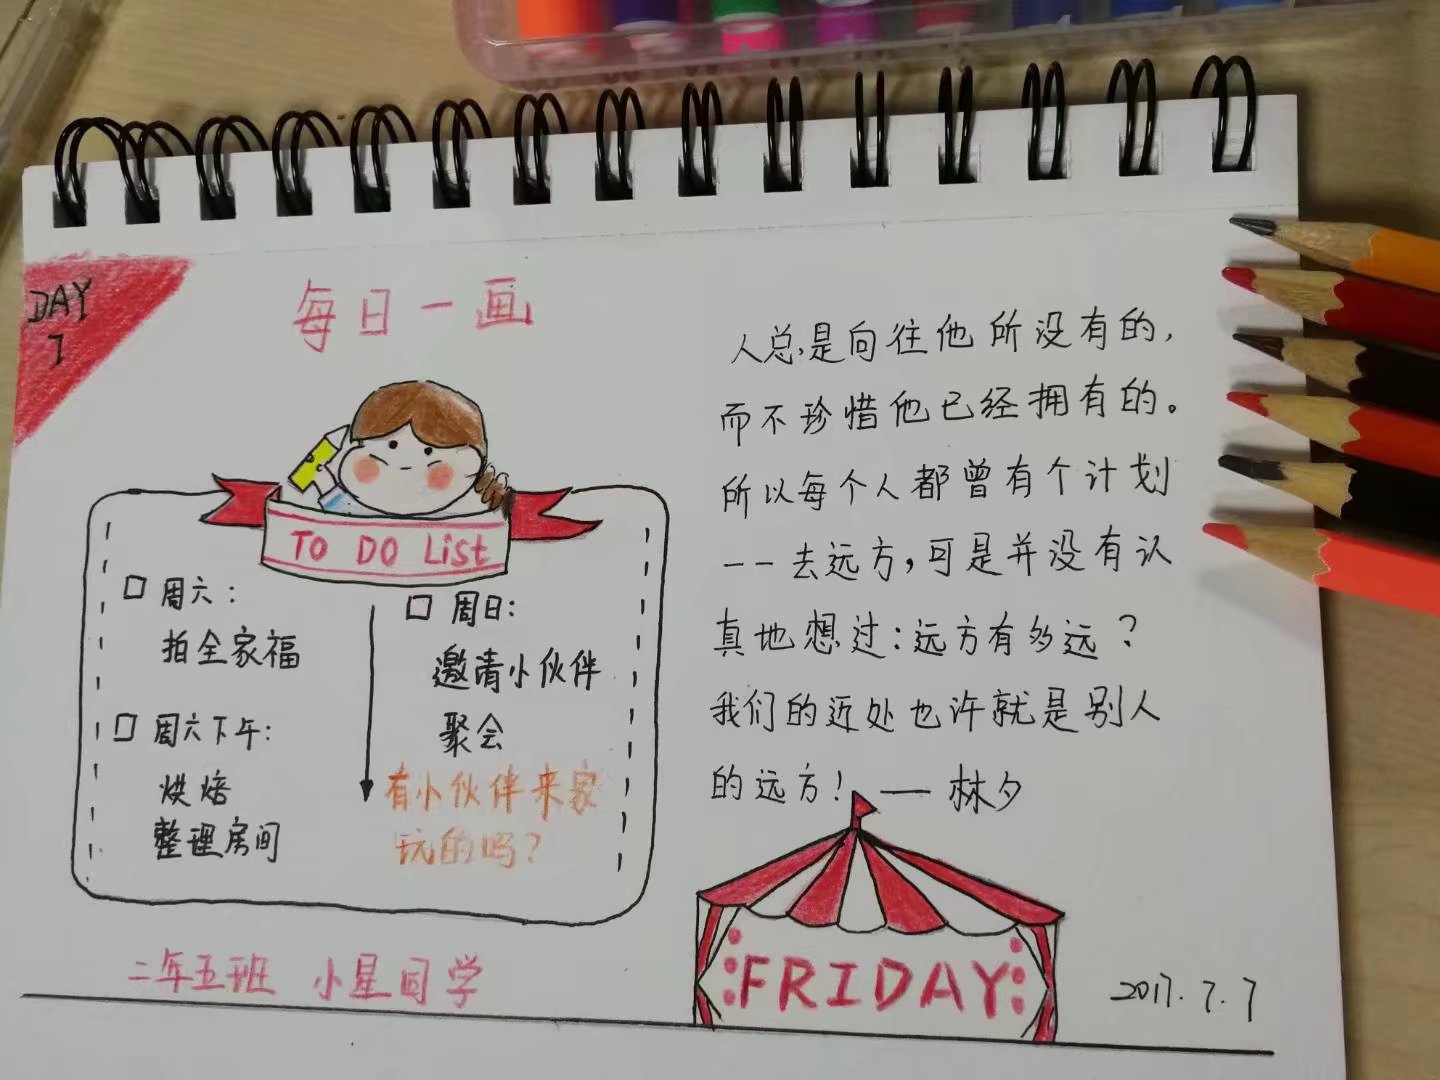 DAY
7
每日一画
TO DO List
周六:
拍全家福
周六下午:
烘焙
整理房间
周日:
邀请小伙伴
聚会
有小伙伴来家
玩的吗?
二年五班 小星同学
人总是向往他所没有的,
而不珍惜他已经拥有的。
所以每个人都曾有个计划
--去远方,可是并没有认
真地想过:远方有多远?
我们的近处也许就是别人
的远方!——林夕
FRIDAY
2017.7.7